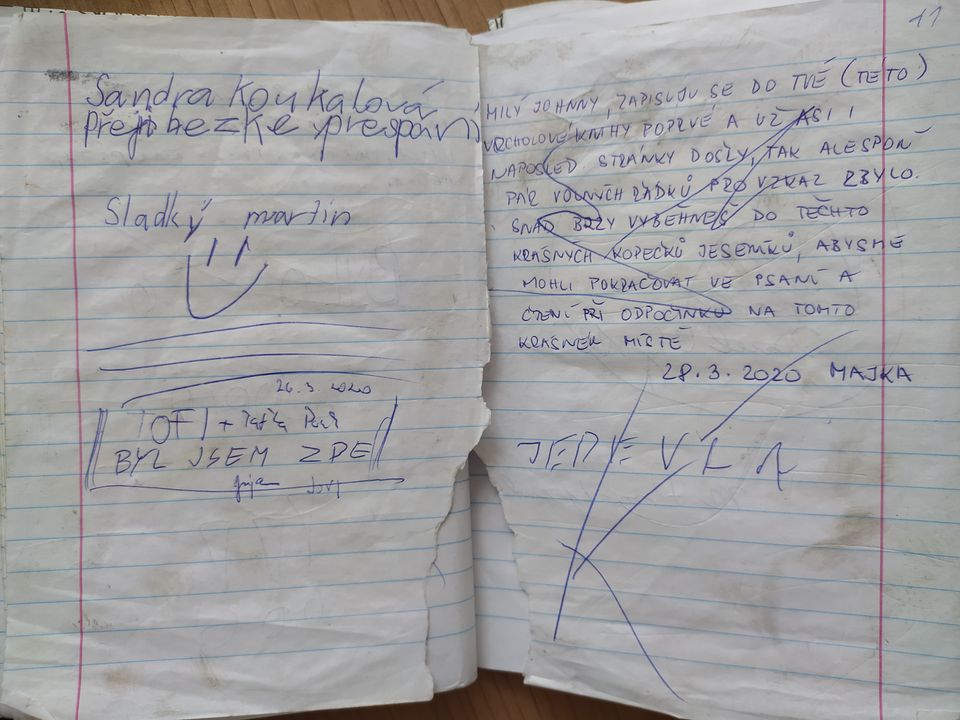 Sandra Koukalová
Přeji bezke prespání
Sladký martin
26.3.2020
TOFI + Taťka
BYL JSEM ZDE
JOVI
11
MILÝ JOHNNY, ZAPISUJU SE DO TVÉ (TÉTO)
VRCHOLOVÉ KNIHY POPRVÉ A UŽ ASI I
NAPOSLED. STRÁNKY DOŠLY, TAK ALESPOŇ
PÁR VOLNÝCH ŘÁDKŮ PRO VZKAZ ZBYLO.
SNAD BRZY VYBĚHNEŠ DO TĚCHTO
KRÁSNÝCH KOPEČKŮ JESENÍKŮ, ABYSME
MOHLI POKRAČOVAT VE PSANÍ A
ČTENÍ PŘI ODPOČINKU NA TOMTO
KRÁSNÉM MÍSTĚ
28.3.2020 MAJKA